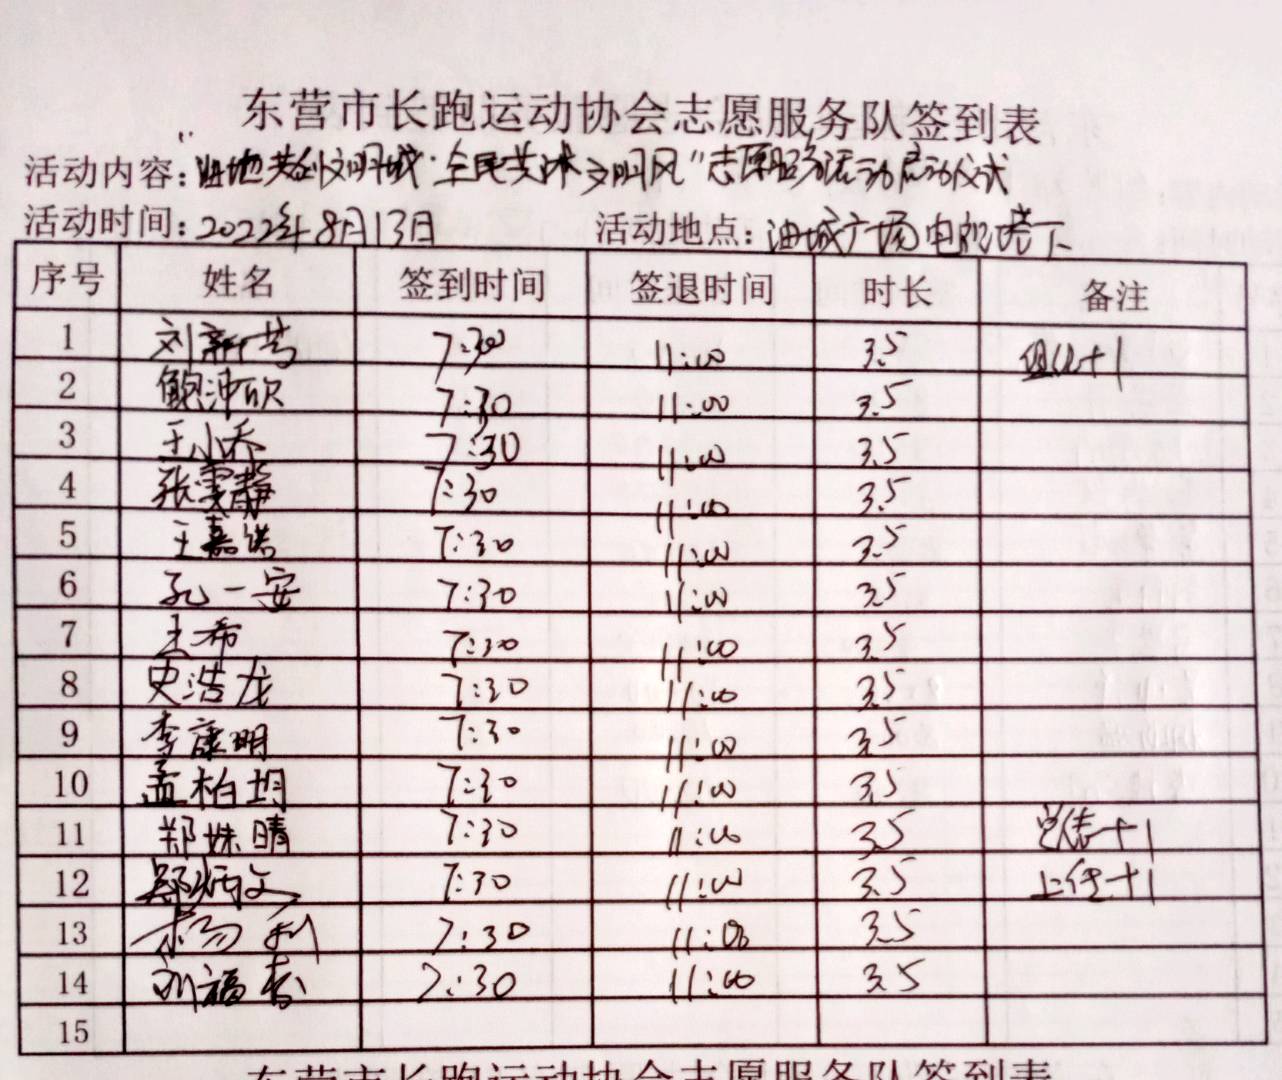 东营市长跑运动协会志愿服务队签到表
活动内容：“油地共创文明城·全民共沐文明风”志愿服务活动启动仪式
活动时间：2022年8月13日 活动地点：油城广场电视塔下
序号 姓名 签到时间 签退时间 时长 备注
1 刘新芳 7:30 11:00 3.5 +1
2 鲍沛欣 7:30 11:00 3.5
3 王小乔 7:30 11:00 3.5
4 张雯静 7:30 11:00 3.5
5 王嘉诺 7:30 11:00 3.5
6 孔一安 7:30 11:00 3.5
7 王希 7:30 11:00 3.5
8 史浩龙 7:30 11:00 3.5
9 李康明 7:30 11:00 3.5
10 孟柏均 7:30 11:00 3.5
11 郑姝晴 7:30 11:00 3.5 +1
12 郑炳文 7:30 11:00 3.5 上传+1
13 杨利 7:30 11:00 3.5
14 刘福春 7:30 11:00 3.5
15
东营市长跑运动协会志愿服务队签到表